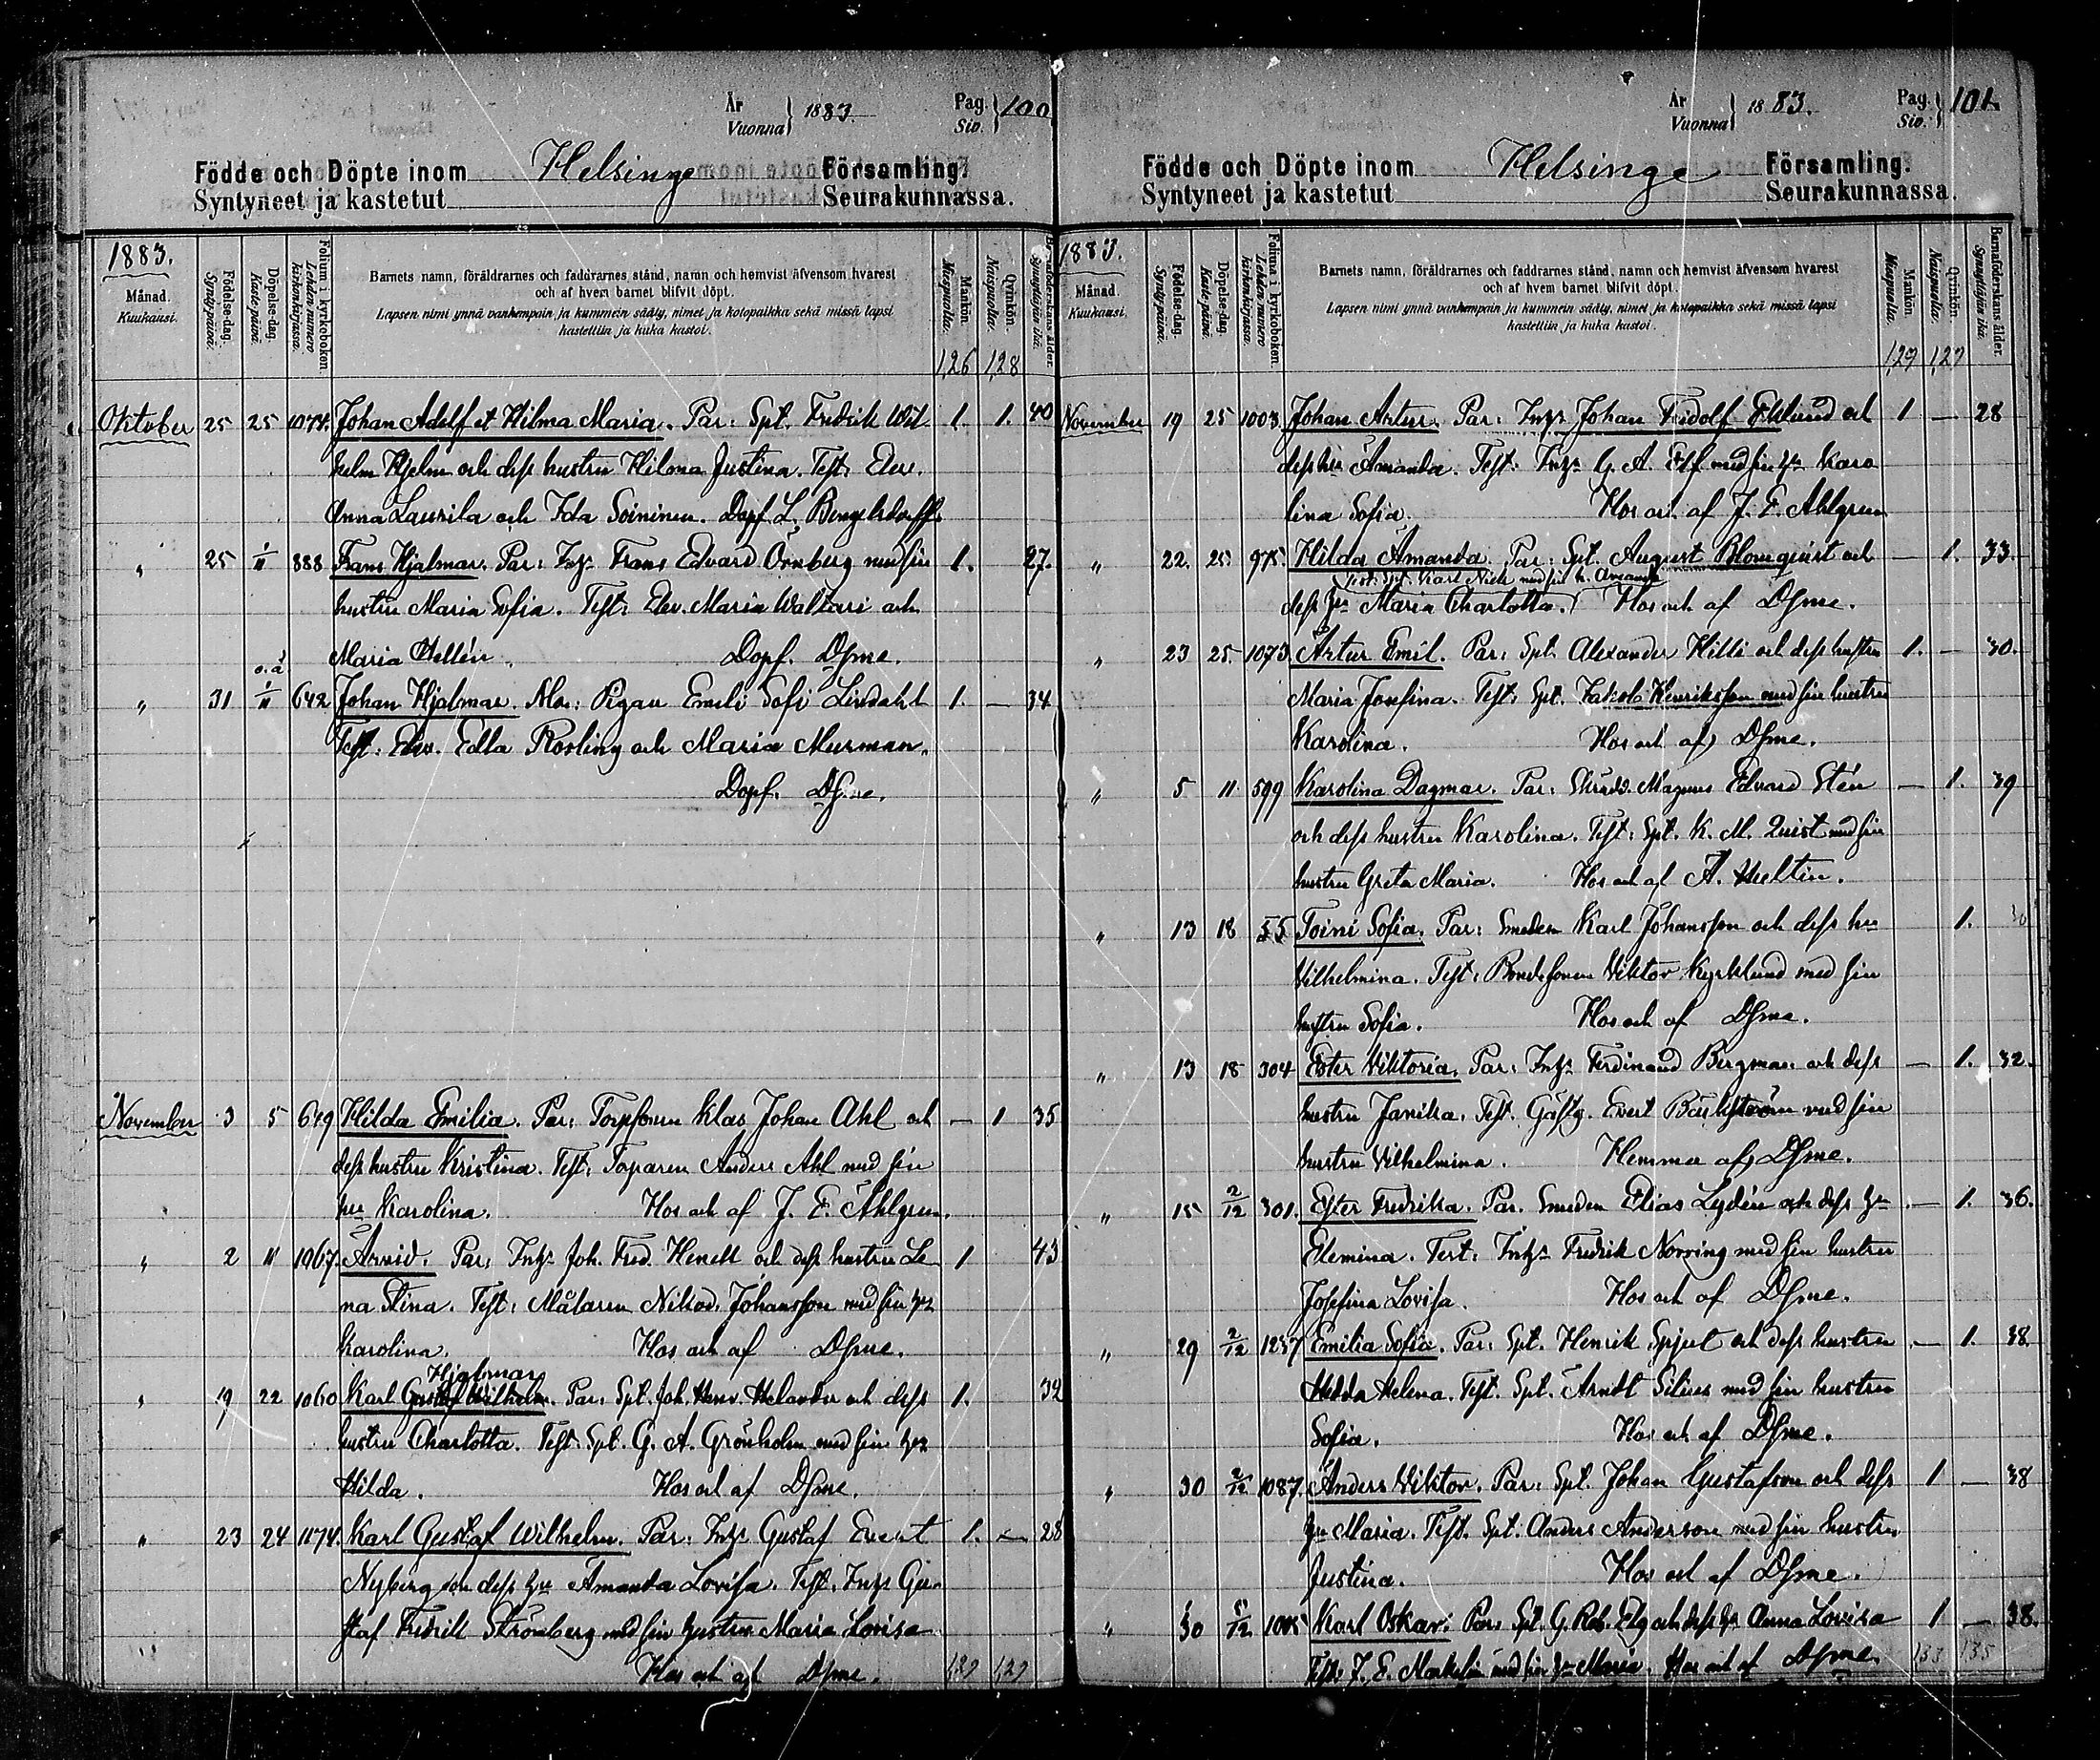 År
Vuonna 1883.
Pag.
Siv. 100
Födde och Döpte inom Helsinge Församling.
Syntyneet ja kastetut Seurakunnassa.
1883.
Månad.
Kuukausi.
Födelse-dag.
Syntypäivä.
Döpelse-dag.
Kaste-päivä.
Folium i kyrkoboken.
Lehden numero
kirkonkirjassa.
Barnets namn, föräldrarnes och faddrarnes stånd, namn och hemvist äfvensom hvarest
och af hvem barnet blifvit döpt.
Lapsen nimi ynnä vanhempain ja kummein sääty, nimet ja kotopaikka sekä missä lapsi
kastettiin ja kuka kastoi.
Mankön.
Miespuolia.
Qvinkön.
Naispuolia.
Barnaföderskans ålder.
Synnyttäjän ikä.
126 128
Oktober 25 25 1074. Johan Adolf et Hilma Maria. Par: Spt. Fredrik Wil 1. 1. 40
helm Hjelm och dess hustru Hilma Justina. Test: Elev.
Anna Laurila och Ida Soininen. Dopf. L. Bengelsdorff.
" 25 1/11 888 Frans Hjalmar. Par: Inh. Frans Edvard Örnberg med sin 1. 27.
hustru Maria Sofia. Test: Elev. Maria Waltari och
Maria Hellén. Dopf. Dsme.
" 31 1/11 642 Johan Hjalmar. Mo: Pigan Emili Sofi Lindahl 1. — 34
Test: Elev. Edla Rosling och Maria Murman.
Dopf. Dsme.
November 3 5 649 Hilda Emilia. Par: Torpsonen Klas Johan Ahl och — 1 35
dess hustru Kristina. Test: Torparen Anders Ahl med sin
hu Karolina. Hos och af J. E. Ahlgren.
" 2 11 1067. Arvid. Par: Inh. Joh. Fred. Henell och dess hustru Le 1 43
na Stina. Test: Målaren Nikod. Johansson med sin hu
Karolina. Hos och af Dsme.
Hjalmar
" 19 22 1060 Karl Gustaf Wilhelm. Par: Spt. Joh. Henr. Helander och dess 1. 32
hustru Charlotta. Test: Spt. G. A. Grönholm med sin hu
Hilda. Hos och af Dsme.
" 23 24 1174. Karl Gustaf Wilhelm. Par: Inh. Gustaf Evert 1. — 28
Nyberg och dess hu Amanda Lovisa. Test: Inh. Gu
staf Fredrik Strömberg med sin hustru Maria Lovisa
Hos och af Dsme. 129 129
År
Vuonna 1883.
Pag.
Siv. 101
Födde och Döpte inom Helsinge Församling.
Syntyneet ja kastetut Seurakunnassa.
1883.
Månad.
Kuukausi.
Födelse-dag.
Syntypäivä.
Döpelse-dag.
Kaste-päivä.
Folium i kyrkoboken.
Lehden numero
kirkonkirjassa.
Barnets namn, föräldrarnes och faddrarnes stånd, namn och hemvist äfvensom hvarest
och af hvem barnet blifvit döpt.
Lapsen nimi ynnä vanhempain ja kummein sääty, nimet ja kotopaikka sekä missä lapsi
kastettiin ja kuka kastoi.
Mankön.
Miespuolia.
Qvinkön.
Naispuolia.
Barnaföderskans ålder.
Synnyttäjän ikä.
129 129
November 19 25 1003. Johan Artur. Par: Inh. Johan Fridolf Eklund och 1 — 28
dess hu Amanda. Test: Inh. G. A. Elf med sin hu Karo
lina Sofia. Hos och af J. E. Ahlgren
" 22. 25 975. Hilda Amanda. Par: Spt. August Blomquist och — 1. 33.
Test: Spt. Karl Nick med sin h. Amanda
dess hu Maria Charlotta. Hos och af Dsme.
" 23 25. 1073. Artur Emil. Par: Spt. Alexander Hilli och dess hustru 1. — 30.
Maria Josefina. Test: Spt. Jakob Henriksson med sin hustru
Karolina. Hos och af Dsme.
" 5 11 599 Karolina Dagmar. Par: Skrädd. Magnus Edvard Stén — 1. 39
och dess hustru Karolina. Test: Spt. K. M. Quist med sin
hustru Greta Maria. Hos och af A. Heltin.
" 13 18 55 Toini Sofia. Par: Smeden Karl Johansson och dess hu 1. 30
Vilhelmina. Test: Bondesonen Viktor Kyrklund med sin
hustru Sofia. Hos och af Dsme.
" 13 18 304 Ester Viktoria. Par: Inh. Ferdinand Bergman och dess — 1. 32.
hustru Janika. Test: Gästg. Evert Bäckström med sin
hustru Vilhelmina. Hemma af Dsme.
" 15 2/12 301. Ester Fredrika. Par. Smeden Elias Lydén och dess hu — 1. 36.
Elemina. Test: Inh. Fredrik Norring med sin hustru
Josefina Lovisa. Hos och af Dsme.
" 29 2/12 1257 Emilia Sofia. Par: Spt. Henrik Spjut och dess hustru — 1. 38.
Hedda Helena. Test. Spt. Arndt Silius med sin hustru
Sofia. Hos och af Dsme.
" 30 2/12 1087. Anders Viktor. Par: Spt. Johan Gustafson och dess 1 — 38
hu Maria. Test. Spt: Anders Anderson med sin hustru
Justina. Hos och af Dsme.
" 30 1005 Karl Oskar. Par. Spt. G. Rob. Elg och dess hu Anna Lovisa 1 — 38.
Test: J. E. med sin hu Maria. Hos och af Dsme 133 135